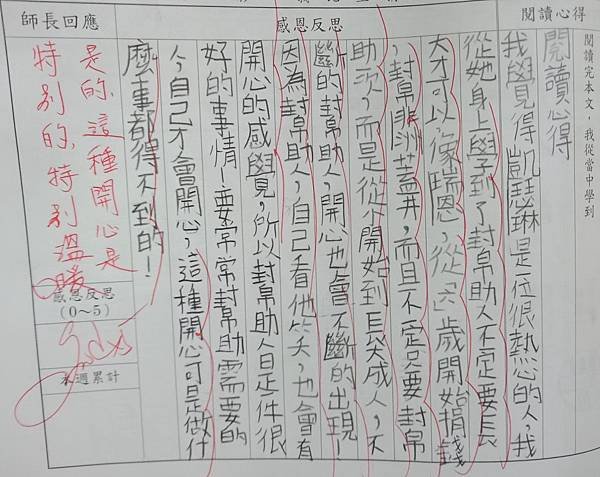 閱讀心得
閱讀完本文，我從當中學到
感恩反思
師長回應
閱讀心得
我學得凱瑟琳是一位很熱心的人，我
從她身上學到了幫助人不一定要長
大才可以，像瑞恩，從「六」歲開始捐錢
，幫非洲蓋井，而且不一定只要幫
助一次，而是從小開始到長大成人，不
斷的幫助人，開心也會不斷的出現！
因為幫助人，自己看他笑，也會有
開心的感覺，所以幫助人是一件很
好的事情！要常常幫助需要的
人，自己才會開心，這種開心可是做什
麼事都得不到的！
是的，這種開心是
特別的，特別溫暖
感恩反思
（0～5）
本週累計